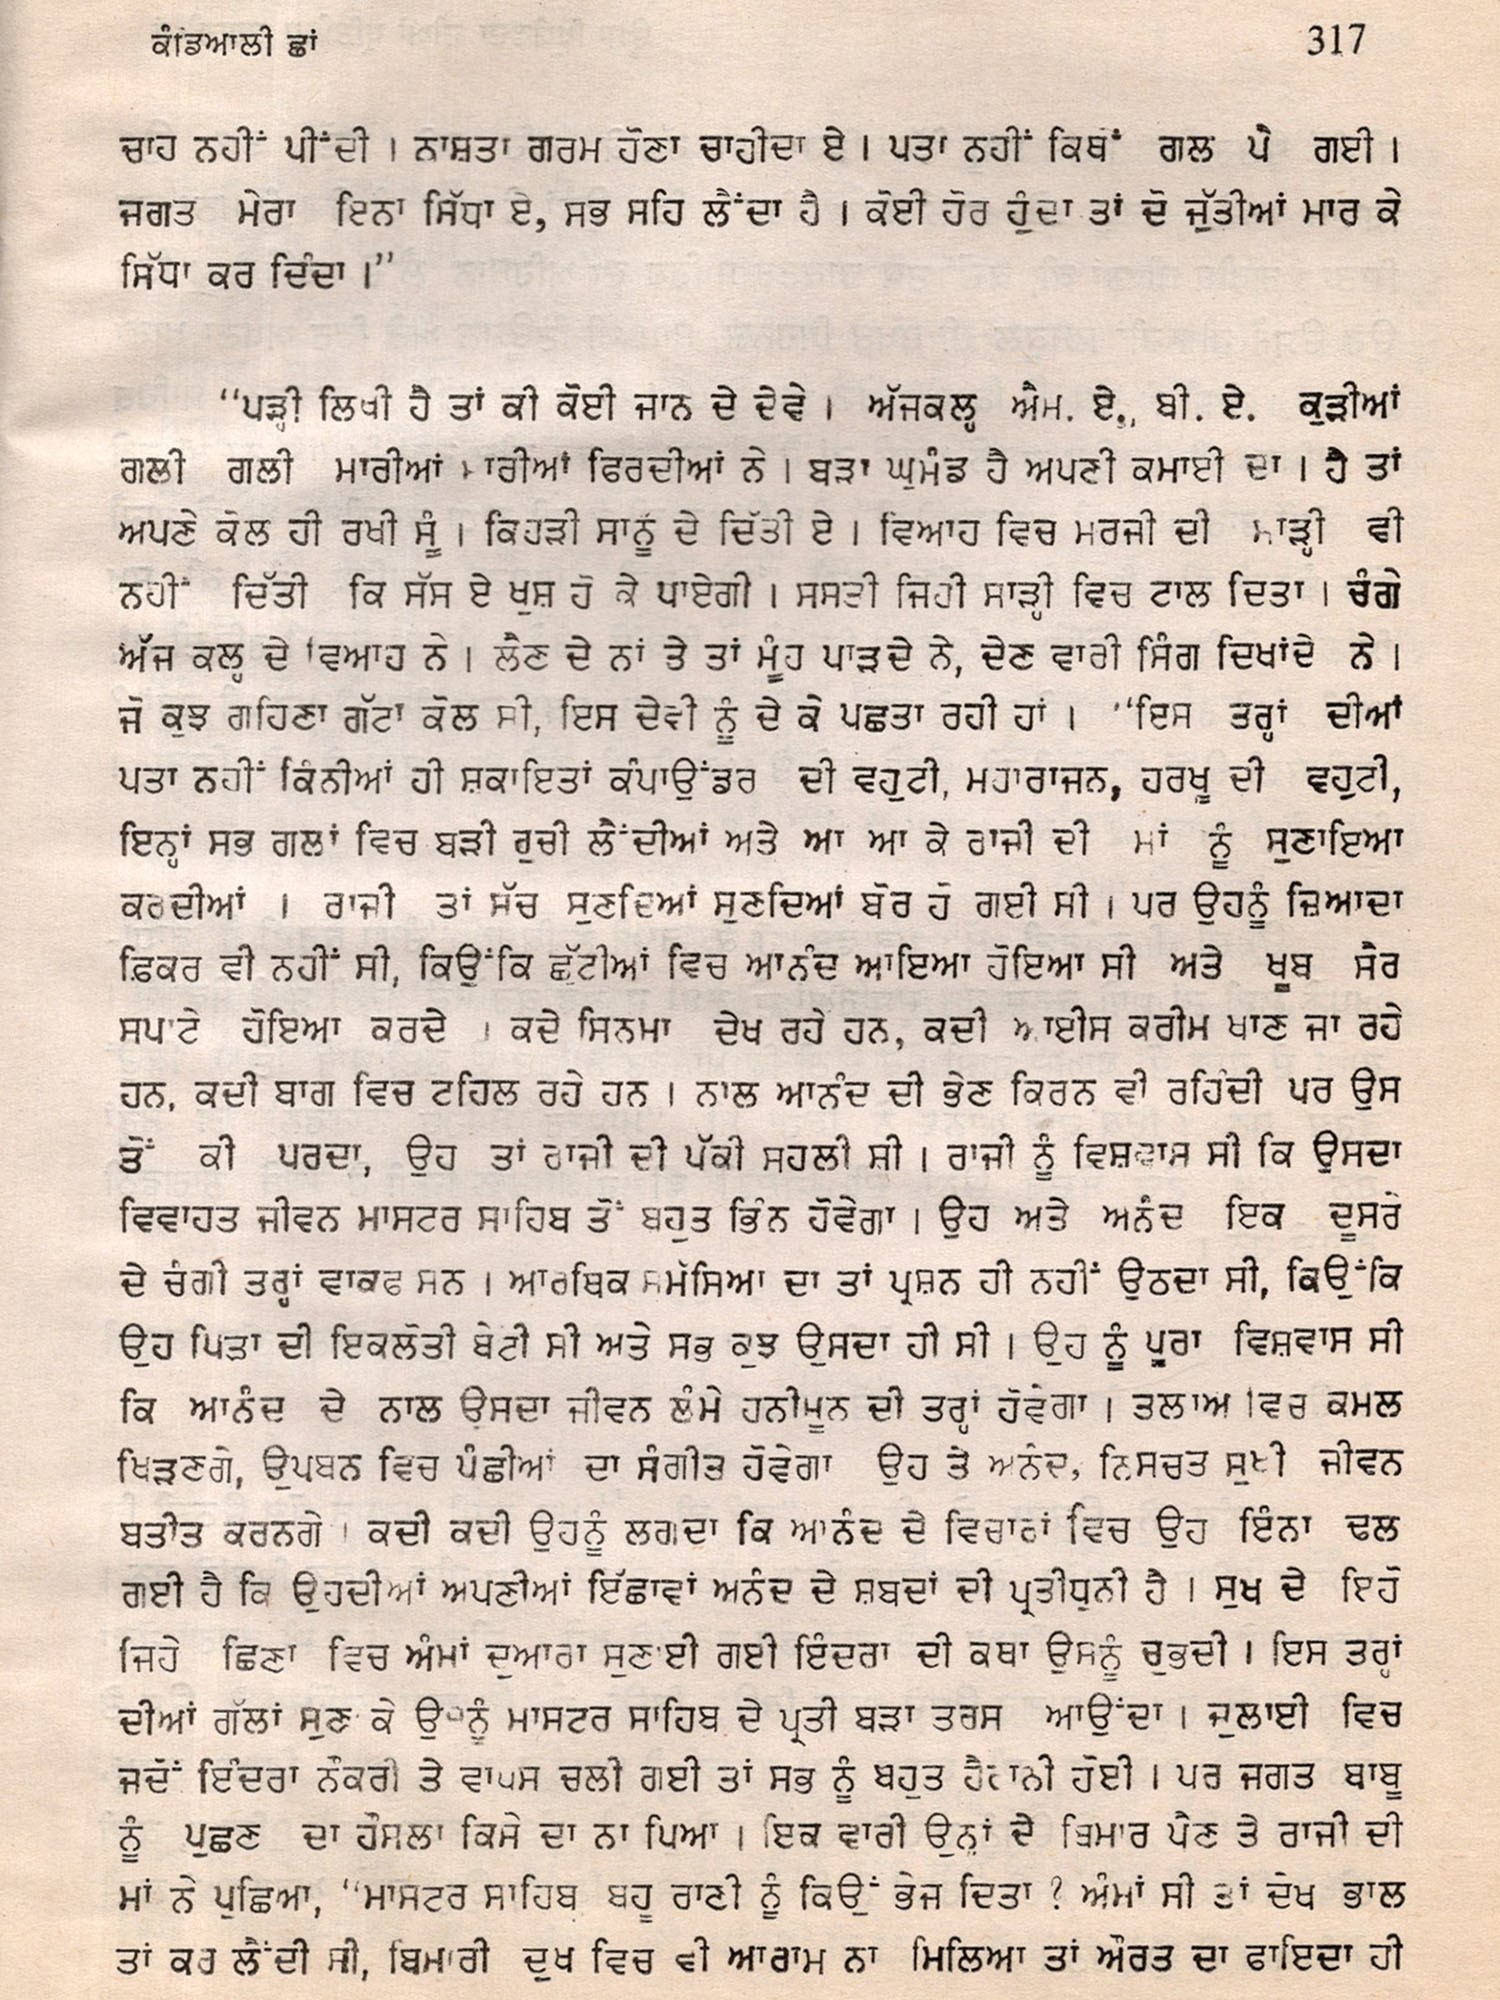 ਕੰਡਿਆਲੀ ਛਾਂ 317
ਚਾਹ ਨਹੀਂ ਪੀਂਦੀ । ਨਾਸ਼ਤਾ ਗਰਮ ਹੋਣਾ ਚਾਹੀਦਾ ਏ । ਪਤਾ ਨਹੀਂ ਕਿਥੋਂ ਗਲ ਪੈ ਗਈ ।
ਜਗਤ ਮੇਰਾ ਇਨਾ ਸਿੱਧਾ ਏ, ਸਭ ਸਹਿ ਲੈਂਦਾ ਹੈ । ਕੋਈ ਹੋਰ ਹੁੰਦਾ ਤਾਂ ਦੋ ਜੁੱਤੀਆਂ ਮਾਰ ਕੇ
ਸਿੱਧਾ ਕਰ ਦਿੰਦਾ ।”
“ਪੜ੍ਹੀ ਲਿਖੀ ਹੈ ਤਾਂ ਕੀ ਕੋਈ ਜਾਨ ਦੇ ਦੇਵੇ । ਅੱਜਕਲ੍ਹ ਐਮ. ਏ., ਬੀ. ਏ. ਕੁੜੀਆਂ
ਗਲੀ ਗਲੀ ਮਾਰੀਆਂ ਮਾਰੀਆਂ ਫਿਰਦੀਆਂ ਨੇ । ਬੜਾ ਘੁਮੰਡ ਹੈ ਅਪਣੀ ਕਮਾਈ ਦਾ । ਹੈ ਤਾਂ
ਅਪਣੇ ਕੋਲ ਹੀ ਰਖੀ ਸੂੰ । ਕਿਹੜੀ ਸਾਨੂੰ ਦੇ ਦਿੱਤੀ ਏ । ਵਿਆਹ ਵਿਚ ਮਰਜੀ ਦੀ ਸਾੜ੍ਹੀ ਵੀ
ਨਹੀਂ ਦਿੱਤੀ ਕਿ ਸੱਸ ਏ ਖੁਸ਼ ਹੋ ਕੇ ਪਾਏਗੀ । ਸਸਤੀ ਜਿਹੀ ਸਾੜ੍ਹੀ ਵਿਚ ਟਾਲ ਦਿਤਾ । ਚੰਗੇ
ਅੱਜ ਕਲ੍ਹ ਦੇ ਵਿਆਹ ਨੇ । ਲੈਣ ਦੇ ਨਾਂ ਤੇ ਤਾਂ ਮੂੰਹ ਪਾੜਦੇ ਨੇ, ਦੇਣ ਵਾਰੀ ਸਿੰਗ ਦਿਖਾਂਦੇ ਨੇ ।
ਜੋ ਕੁਝ ਗਹਿਣਾ ਗੱਟਾ ਕੋਲ ਸੀ, ਇਸ ਦੇਵੀ ਨੂੰ ਦੇ ਕੇ ਪਛਤਾ ਰਹੀ ਹਾਂ । “ਇਸ ਤਰ੍ਹਾਂ ਦੀਆਂ
ਪਤਾ ਨਹੀਂ ਕਿੰਨੀਆਂ ਹੀ ਸ਼ਕਾਇਤਾਂ ਕੰਪਾਉਂਡਰ ਦੀ ਵਹੁਟੀ, ਮਹਾਰਾਜਨ, ਹਰਖੂ ਦੀ ਵਹੁਟੀ,
ਇਨ੍ਹਾਂ ਸਭ ਗਲਾਂ ਵਿਚ ਬੜੀ ਰੁਚੀ ਲੈਂਦੀਆਂ ਅਤੇ ਆ ਆ ਕੇ ਰਾਜੀ ਦੀ ਮਾਂ ਨੂੰ ਸੁਣਾਇਆ
ਕਰਦੀਆਂ । ਰਾਜੀ ਤਾਂ ਸੱਚ ਸੁਣਦਿਆਂ ਸੁਣਦਿਆਂ ਬੋਰ ਹੋ ਗਈ ਸੀ । ਪਰ ਉਹਨੂੰ ਜ਼ਿਆਦਾ
ਫ਼ਿਕਰ ਵੀ ਨਹੀਂ ਸੀ, ਕਿਉਂਕਿ ਛੁੱਟੀਆਂ ਵਿਚ ਆਨੰਦ ਆਇਆ ਹੋਇਆ ਸੀ ਅਤੇ ਖੂਬ ਸੈਰ
ਸਪਾਟੇ ਹੋਇਆ ਕਰਦੇ । ਕਦੇ ਸਿਨਮਾ ਦੇਖ ਰਹੇ ਹਨ, ਕਦੀ ਆਈਸ ਕਰੀਮ ਖਾਣ ਜਾ ਰਹੇ
ਹਨ, ਕਦੀ ਬਾਗ ਵਿਚ ਟਹਿਲ ਰਹੇ ਹਨ । ਨਾਲ ਆਨੰਦ ਦੀ ਭੇਣ ਕਿਰਨ ਵੀ ਰਹਿੰਦੀ ਪਰ ਉਸ
ਤੋਂ ਕੀ ਪਰਦਾ, ਉਹ ਤਾਂ ਰਾਜੀ ਦੀ ਪੱਕੀ ਸਹਲੀ ਸੀ । ਰਾਜੀ ਨੂੰ ਵਿਸ਼ਵਾਸ ਸੀ ਕਿ ਉਸਦਾ
ਵਿਵਾਹਤ ਜੀਵਨ ਮਾਸਟਰ ਸਾਹਿਬ ਤੋਂ ਬਹੁਤ ਭਿੰਨ ਹੋਵੇਗਾ । ਉਹ ਅਤੇ ਅਨੰਦ ਇਕ ਦੂਸਰੇ
ਦੇ ਚੰਗੀ ਤਰ੍ਹਾਂ ਵਾਕਫ ਸਨ । ਆਰਥਿਕ ਸਮੱਸਿਆ ਦਾ ਤਾਂ ਪ੍ਰਸ਼ਨ ਹੀ ਨਹੀਂ ਉਠਦਾ ਸੀ, ਕਿਉਂਕਿ
ਉਹ ਪਿਤਾ ਦੀ ਇਕਲੌਤੀ ਬੇਟੀ ਸੀ ਅਤੇ ਸਭ ਕੁਝ ਉਸਦਾ ਹੀ ਸੀ । ਉਹ ਨੂੰ ਪੂਰਾ ਵਿਸ਼ਵਾਸ ਸੀ
ਕਿ ਆਨੰਦ ਦੇ ਨਾਲ ਉਸਦਾ ਜੀਵਨ ਲੰਮੇ ਹਨੀਮੂਨ ਦੀ ਤਰ੍ਹਾਂ ਹੋਵੇਗਾ । ਤਲਾਅ ਵਿਚ ਕਮਲ
ਖਿੜਣਗੇ, ਉਪਬਨ ਵਿਚ ਪੰਛੀਆਂ ਦਾ ਸੰਗੀਤ ਹੋਵੇਗਾ ਉਹ ਤੇ ਅਨੰਦ, ਨਿਸਚਤ ਸੁਖੀ ਜੀਵਨ
ਬਤੀਤ ਕਰਨਗੇ । ਕਦੀ ਕਦੀ ਉਹਨੂੰ ਲਗਦਾ ਕਿ ਆਨੰਦ ਦੇ ਵਿਚਾਰਾਂ ਵਿਚ ਉਹ ਇੰਨਾ ਢਲ
ਗਈ ਹੈ ਕਿ ਉਹਦੀਆਂ ਅਪਣੀਆਂ ਇੱਛਾਵਾਂ ਅਨੰਦ ਦੇ ਸ਼ਬਦਾਂ ਦੀ ਪ੍ਰਤੀਧੁਨੀ ਹੈ । ਸੁਖ ਦੇ ਇਹੋ
ਜਿਹੇ ਛਿਣਾ ਵਿਚ ਅੰਮਾਂ ਦੁਆਰਾ ਸੁਣਾਈ ਗਈ ਇੰਦਰਾ ਦੀ ਕਥਾ ਉਸਨੂੰ ਚੁਭਦੀ । ਇਸ ਤਰ੍ਹਾਂ
ਦੀਆਂ ਗੱਲਾਂ ਸੁਣ ਕੇ ਉਹਨੂੰ ਮਾਸਟਰ ਸਾਹਿਬ ਦੇ ਪ੍ਰਤੀ ਬੜਾ ਤਰਸ ਆਉਂਦਾ । ਜੁਲਾਈ ਵਿਚ
ਜਦੋਂ ਇੰਦਰਾ ਨੌਕਰੀ ਤੇ ਵਾਪਸ ਚਲੀ ਗਈ ਤਾਂ ਸਭ ਨੂੰ ਬਹੁਤ ਹੈਰਾਨੀ ਹੋਈ । ਪਰ ਜਗਤ ਬਾਬੂ
ਨੂੰ ਪੁਛਣ ਦਾ ਹੌਸਲਾ ਕਿਸੇ ਦਾ ਨਾ ਪਿਆ । ਇਕ ਵਾਰੀ ਉਨ੍ਹਾਂ ਦੇ ਬਿਮਾਰ ਪੈਣ ਤੇ ਰਾਜੀ ਦੀ
ਮਾਂ ਨੇ ਪੁਛਿਆ, “ਮਾਸਟਰ ਸਾਹਿਬ ਬਹੂ ਰਾਣੀ ਨੂੰ ਕਿਉਂ ਭੇਜ ਦਿਤਾ ? ਅੰਮਾਂ ਸੀ ਤਾਂ ਦੇਖ ਭਾਲ
ਤਾਂ ਕਰ ਲੈਂਦੀ ਸੀ, ਬਿਮਾਰੀ ਦੁਖ ਵਿਚ ਵੀ ਆਰਾਮ ਨਾ ਮਿਲਿਆ ਤਾਂ ਔਰਤ ਦਾ ਫਾਇਦਾ ਹੀ